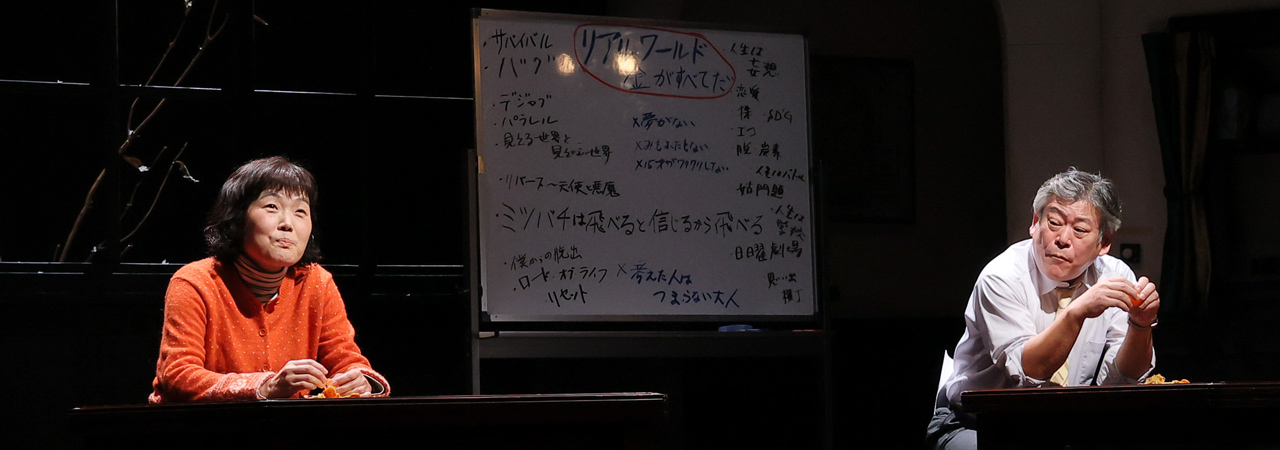 ・サバイバル
・バグ
リアルワールド
金がすべてだ
・デジャブ
・パラレル
・見える世界と
見えない世界
×夢がない
×みもふたもない
・リバース〜天使と悪魔
・ミツバチは飛べると信じるから飛べる
・僕からの脱出
・ロード・オブ・ライフ
リセット
×考えた人は
つまらない大人
・人生は
妄想
恋愛
SDG
エコ
脱炭素
・人生は
日曜劇場
思い出
横丁